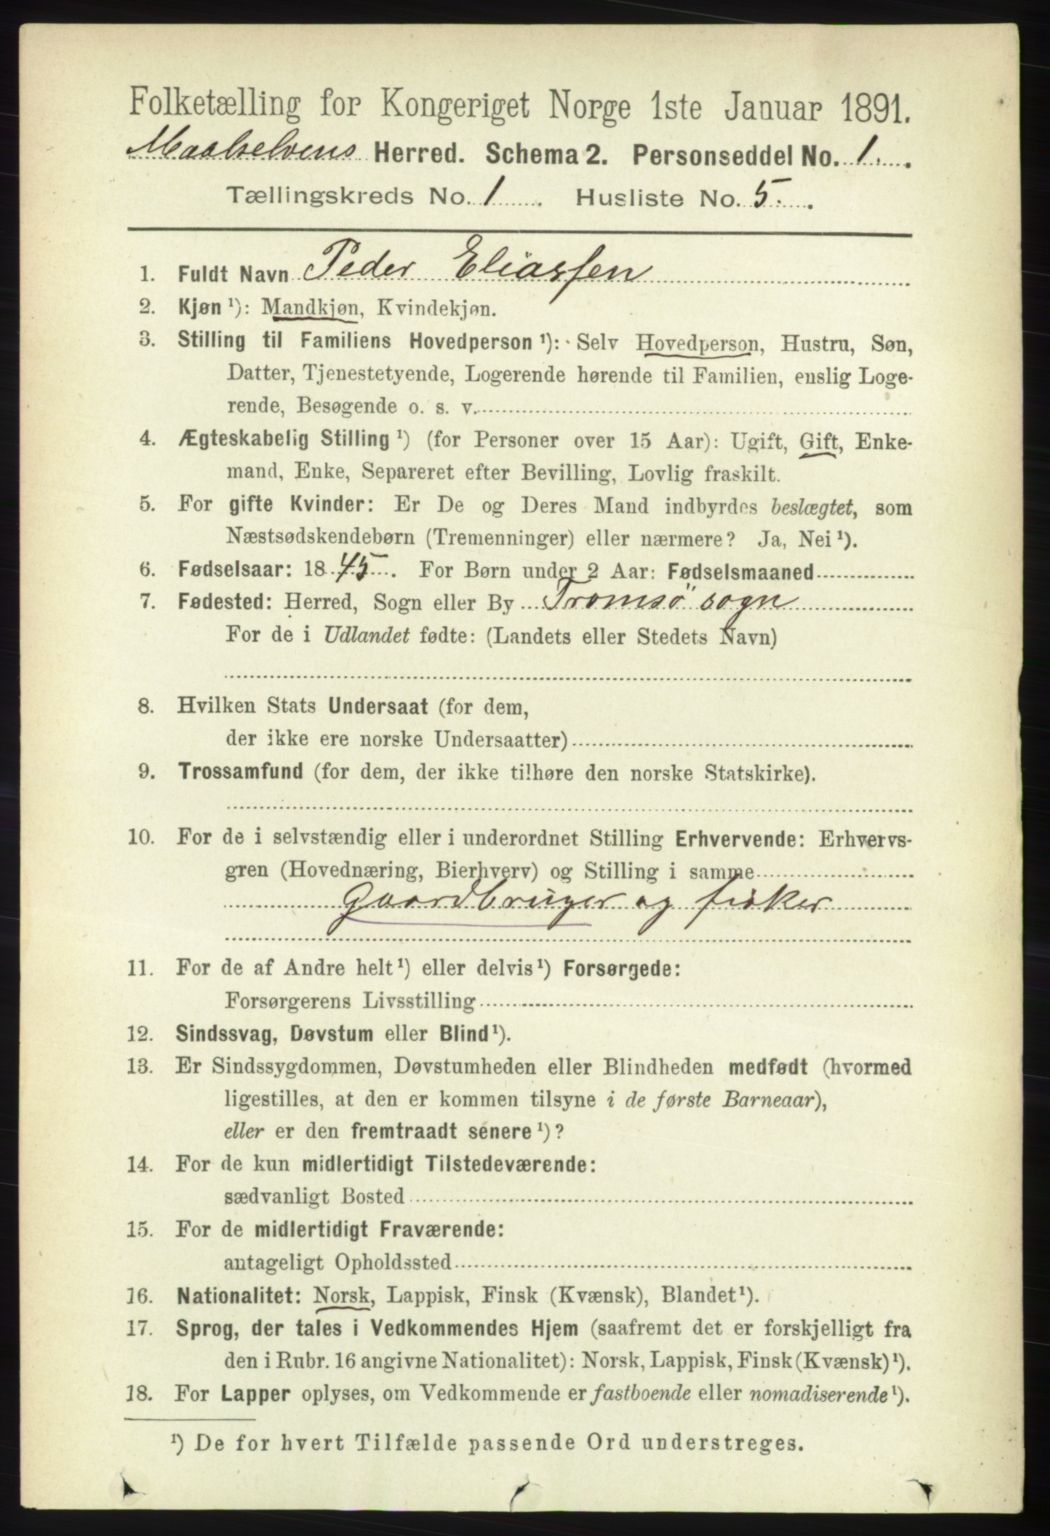 Folketælling for Kongeriget Norge 1ste Januar 1891.
Maalselvens Herred. Schema 2. Personseddel No. 1.
Tællingskreds No. 1. Husliste No. 5.
1. Fuldt Navn Peder Eliassen
2. Kjøn ¹): Mandkjøn, Kvindekjøn.
3. Stilling til Familiens Hovedperson ¹): Selv Hovedperson, Hustru, Søn,
Datter, Tjenestetyende, Logerende hørende til Familien, enslig Loge-
rende, Besøgende o. s. v.
4. Ægteskabelig Stilling ¹) (for Personer over 15 Aar): Ugift, Gift, Enke-
mand, Enke, Separeret efter Bevilling, Lovlig fraskilt.
5. For gifte Kvinder: Er De og Deres Mand indbyrdes beslægtet, som
Næstsødskendebørn (Tremenninger) eller nærmere? Ja, Nei ¹).
6. Fødselsaar: 1845. For Børn under 2 Aar: Fødselsmaaned
7. Fødested: Herred, Sogn eller By Tromsø sogn
For de i Udlandet fødte: (Landets eller Stedets Navn)
8. Hvilken Stats Undersaat (for dem,
der ikke ere norske Undersaatter)
9. Trossamfund (for dem, der ikke tilhøre den norske Statskirke).
10. For de i selvstændig eller i underordnet Stilling Erhvervende: Erhvervs-
gren (Hovednæring, Bierhverv) og Stilling i samme
Gaardbruger og fisker
11. For de af Andre helt ¹) eller delvis ¹) Forsørgede:
Forsørgerens Livsstilling
12. Sindssvag, Døvstum eller Blind ¹).
13. Er Sindssygdommen, Døvstumheden eller Blindheden medfødt (hvormed
ligestilles, at den er kommen tilsyne i de første Barneaar),
eller er den fremtraadt senere ¹)?
14. For de kun midlertidigt Tilstedeværende:
sædvanligt Bosted
15. For de midlertidigt Fraværende:
antageligt Opholdssted
16. Nationalitet: Norsk, Lappisk, Finsk (Kvænsk), Blandet ¹).
17. Sprog, der tales i Vedkommendes Hjem (saafremt det er forskjelligt fra
den i Rubr. 16 angivne Nationalitet): Norsk, Lappisk, Finsk (Kvænsk) ¹).
18. For Lapper oplyses, om Vedkommende er fastboende eller nomadiserende ¹).
¹) De for hvert Tilfælde passende Ord understreges.